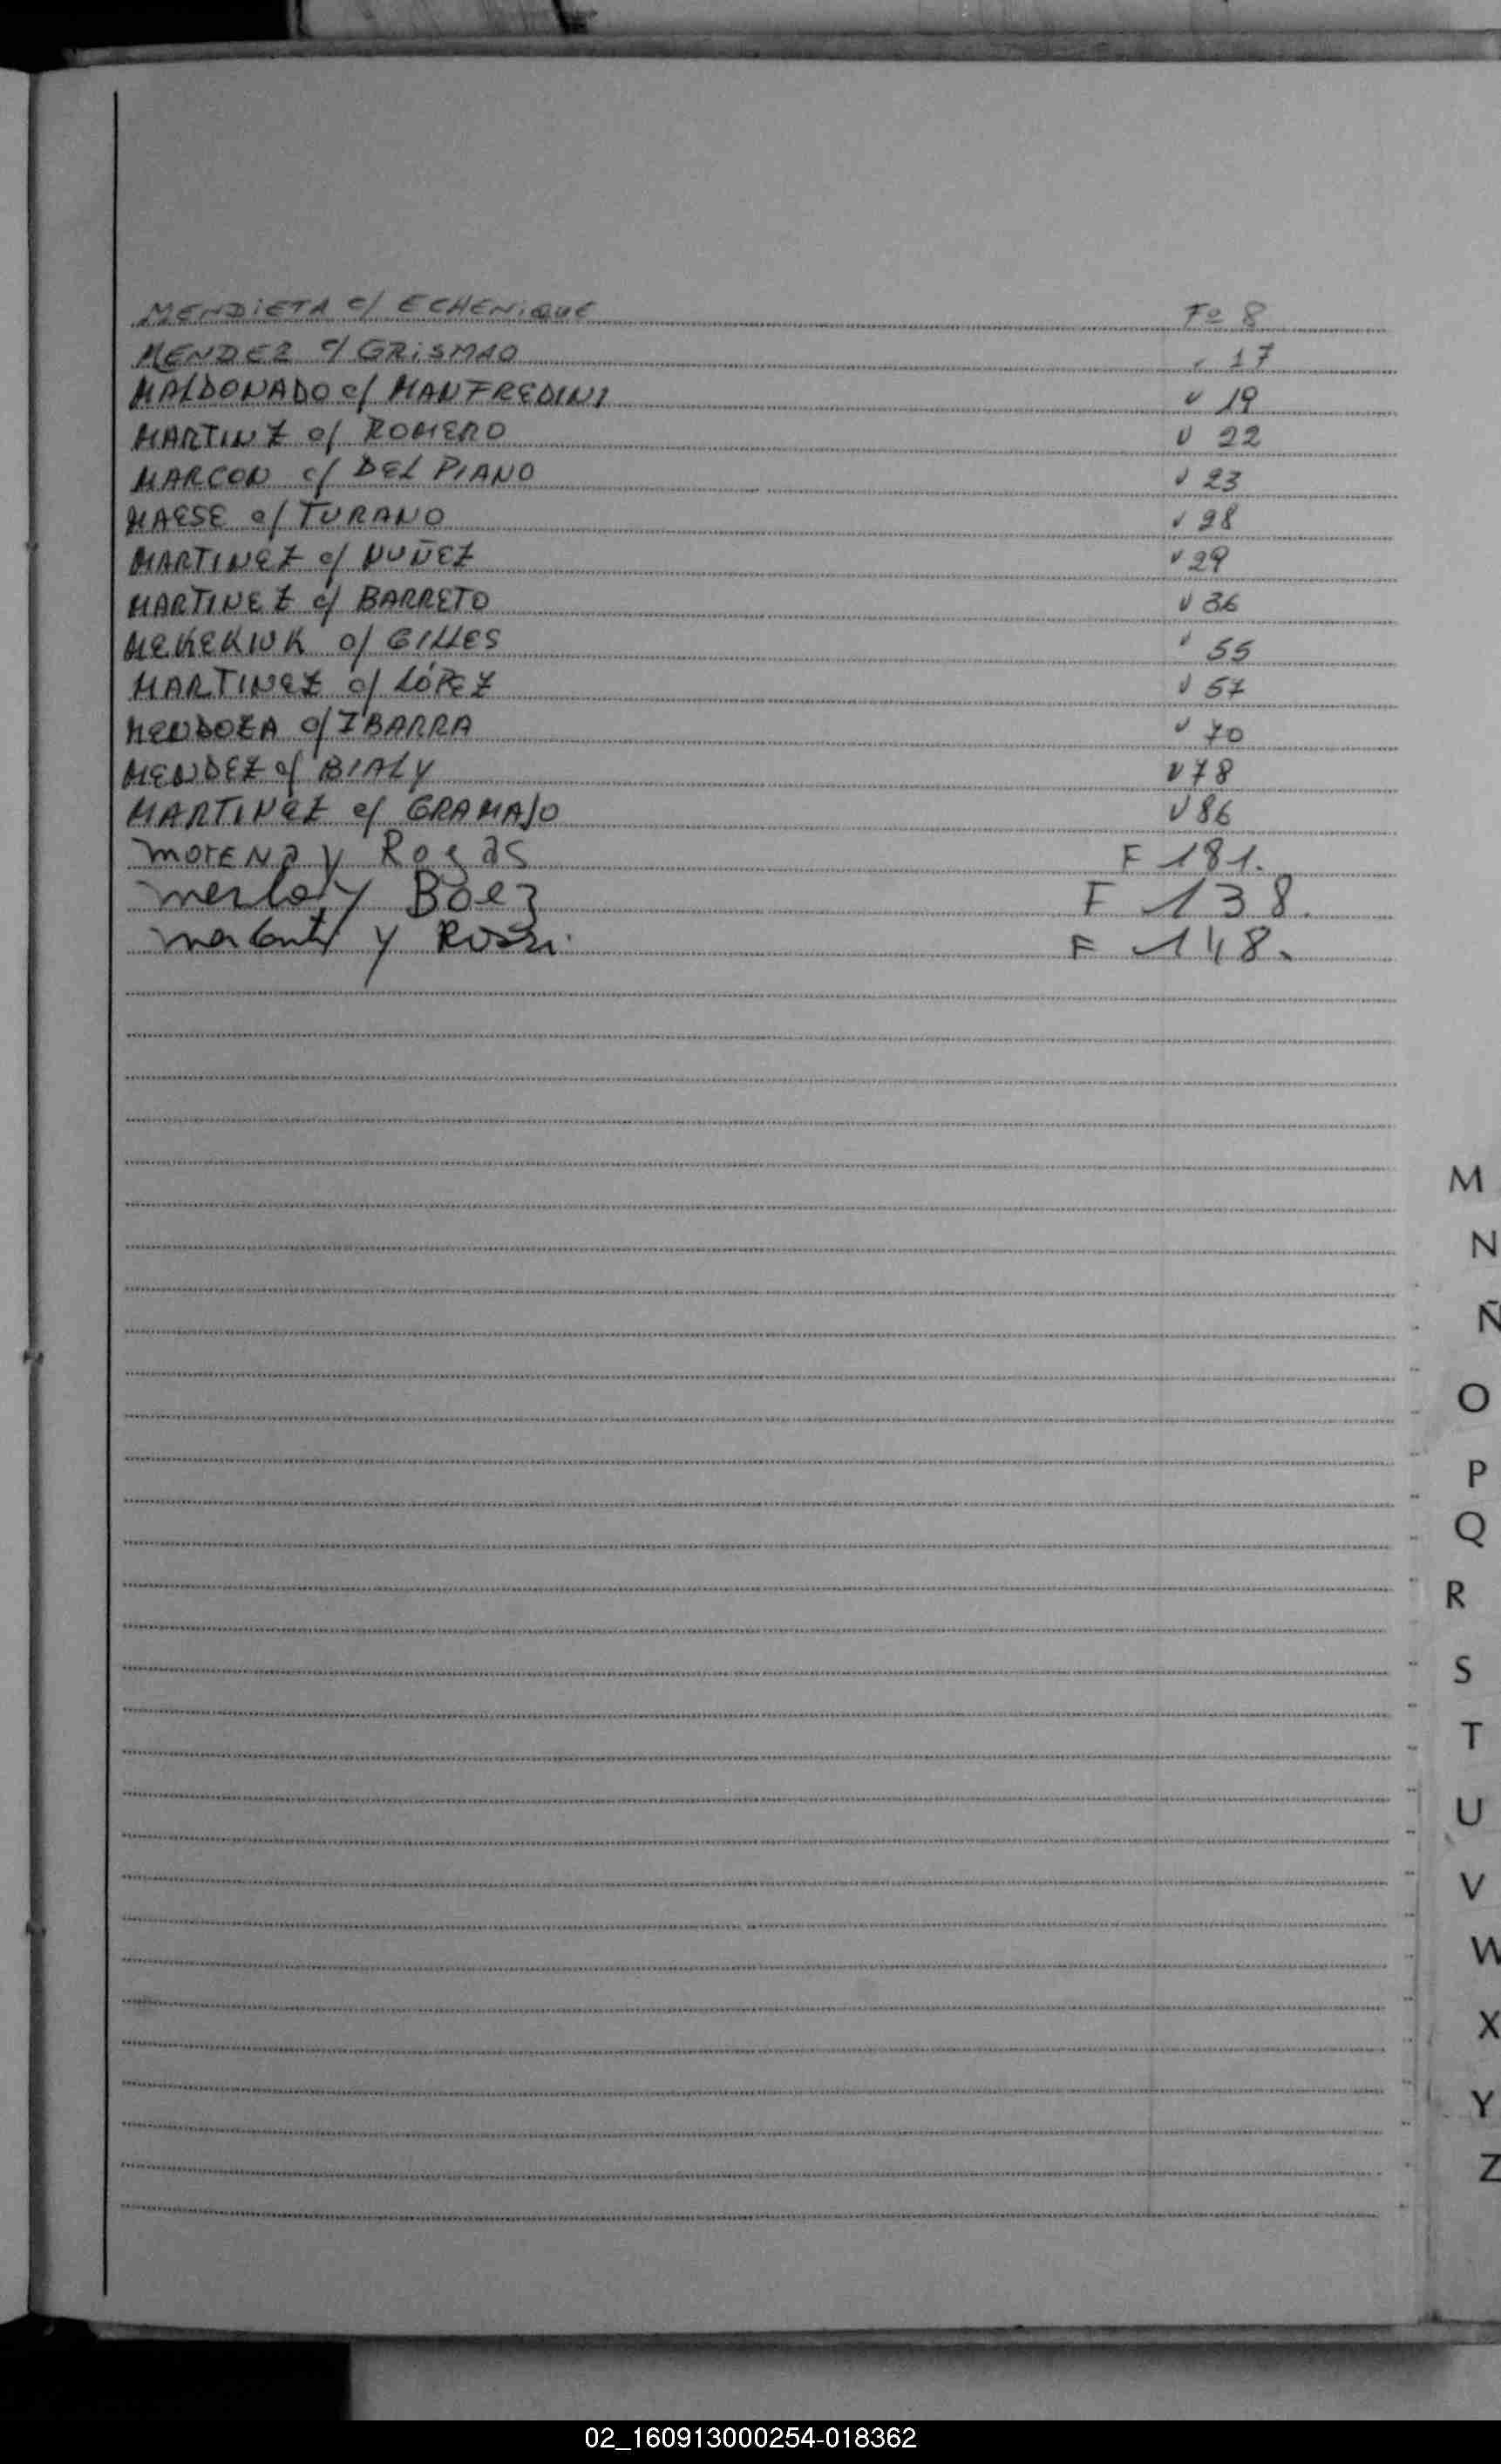 MENDIETA c/ ECHENIQUE Fº 8
MENDEZ c/ GRISMAO " 17
MALDONADO c/ MANFREDINI " 19
MARTINZ c/ ROMERO " 22
MARCON c/ DEL PIANO " 23
MAESE c/ TURANO " 28
MARTINEZ c/ NUÑEZ " 29
MARTINEZ c/ BARRETO " 36
MEKEKIUK c/ GILLES " 55
MARTINEZ c/ LÓPEZ " 57
MENDOZA c/ IBARRA " 70
MENDEZ c/ BIALY " 78
MARTINEZ c/ GRAMAJO " 86
MORENO y Rojas F 181.
Merlo y Baez F 138.
y Rossi. F 148.
M
N
Ñ
O
P
Q
R
S
T
U
V
W
X
Y
Z
02_160913000254-018362